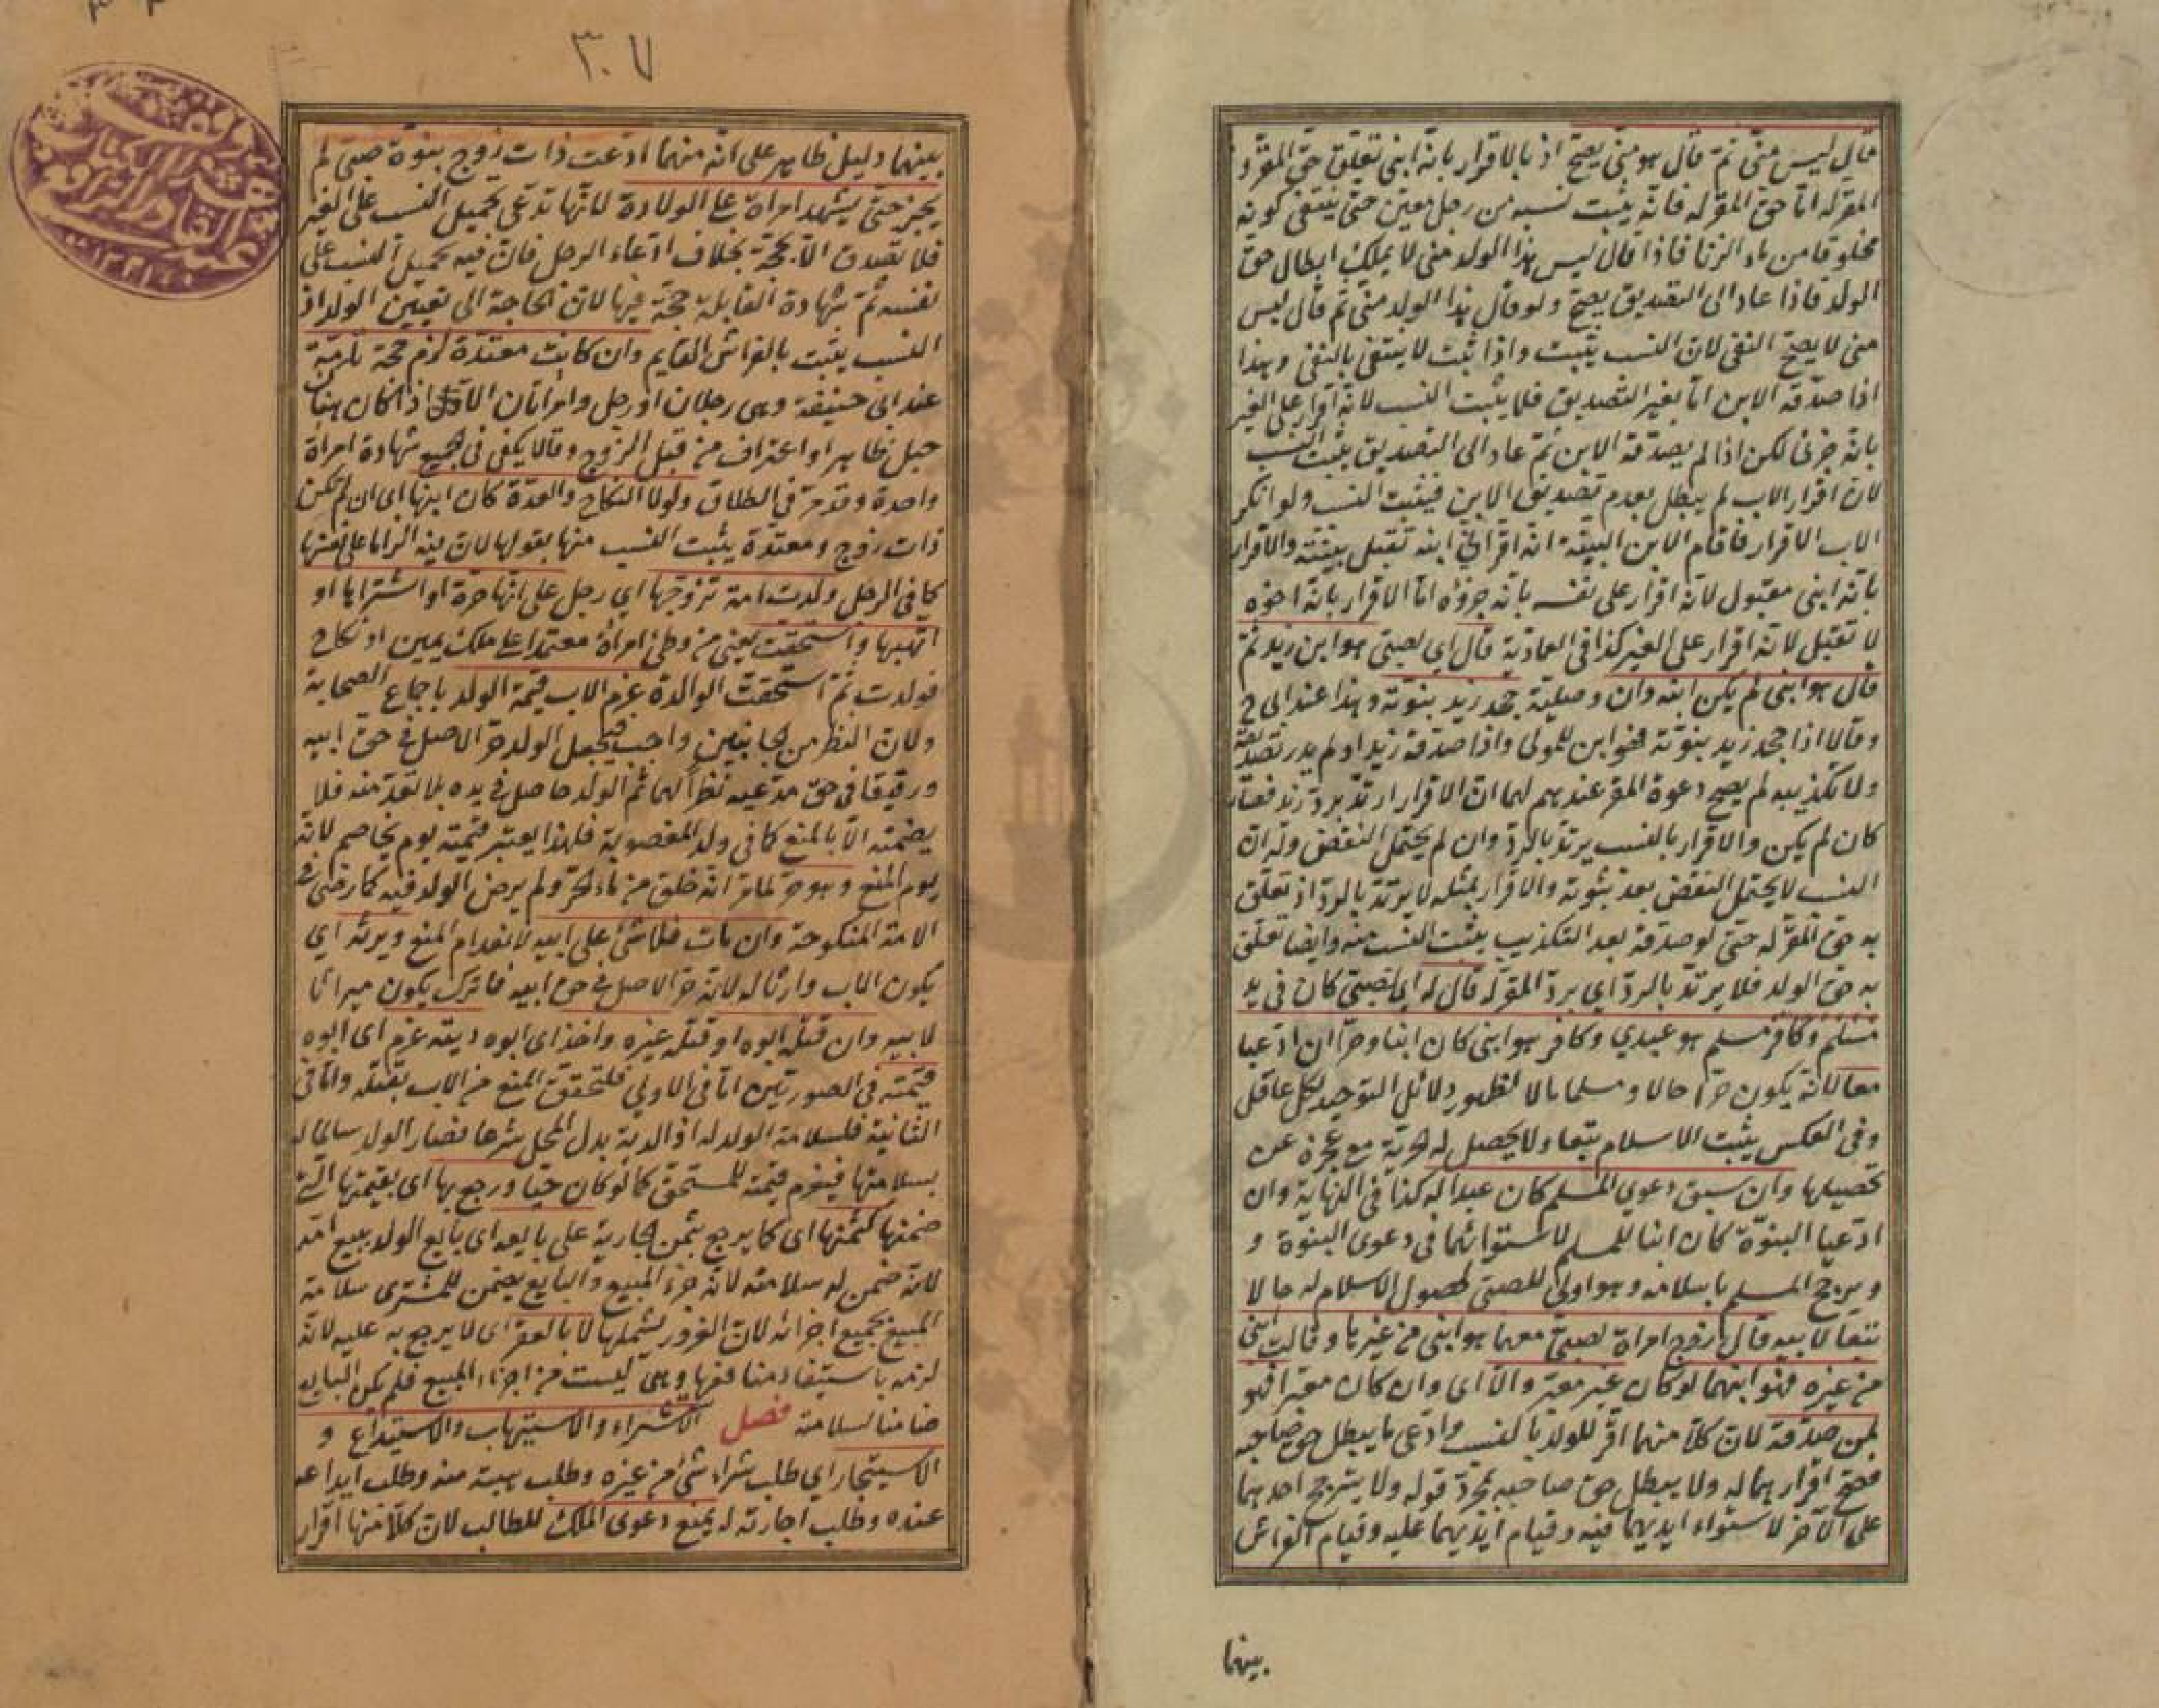 قال ليس منى ثم قال هو منى يصح اذ بالاقرار بانه ابنى تعلق حق المقر و
المقر له اما حق المقر له فانه يثبت نسبه من رجل معين حتى ينتفى كونه
مخلوقا من ماء الزنا فاذا قال ليس هذا الولد منى لا يملك ابطال حق
الولد فاذا عاد الى التصديق يصح ولو قال هذا الولد منى ثم قال ليس
منى لا يصح النفى لان النسب يثبت واذا ثبت لا ينتفى بالنفى وهذا
اذا صدقه الابن اما بغير التصديق فلا يثبت النسب لانه اقرار على الغير
بانه جزئى لكن اذا لم يصدقه الابن ثم عاد الى التصديق يثبت النسب
لان اقرار الاب لم يبطل بعدم تصديق الابن فيثبت النسب ولو انكر
الاب الاقرار فاقام الابن البينة انه اقر انى ابنه تقبل بينته والاقرار
بانه ابنى مقبول لانه اقرار على نفسه بانه جزؤه اما الاقرار بانه اخوه
لا تقبل لانه اقرار على الغير كذا فى العمادية قال اي لصبى هو ابن زيد ثم
قال هو ابنى لم يكن ابنه وان وصلية جحد زيد بنوته وهذا عند ابى ح
وقالا اذا جحد زيد بنوته فهو ابن للمولى واذا صدقه زيد او لم يدر تصديقه
ولا تكذيبه لم يصح دعوة المقر عندهم لهما ان الاقرار ارتد برد زيد فصار
كان لم يكن والاقرار بالنسب يرتد بالرد وان لم يحتمل النقض وله ان
النسب لا يحتمل النقض بعد ثبوته والاقرار بمثله لا يرتد بالرد اذ تعلق
به حق المقر له حتى لو صدقه بعد التكذيب يثبت النسب منه وايضا تعلق
به حق الولد فلا يرتد بالرد اي برد المقر له قال له اي لصبى كان فى يد
مسلم وكافر مسلم هو عبدي وكافر هو ابنى كان ابنا وحرا ان ادعيا
معا لانه يكون حرا حالا ومسلما مالا لظهور دلائل التوحيد لكل عاقل
وفى العكس يثبت الاسلام تبعا ولا يحصل له الحرية مع عجزه عن
تحصيلها وان سبق دعوى المسلم كان عبدا له كذا فى النهاية وان
ادعيا البنوة كان ابنا للمسلم لاستوائهما فى دعوى البنوة و
ويرجح المسلم باسلامه وهو اولى للصبى لحصول الاسلام له حالا
تبعا لابيه قال زوج امراة لصبى معهما هو ابنى من غيرها وقالت ابنى
من غيره فهو ابنهما لو كان غير معبر والا اى وان كان معبرا فهو
لمن صدقه لان كلا منهما اقر للولد بالنسب وادعى ما يبطل حق صاحبه
فصح اقرارهما له ولا يبطل حق صاحبه بمجرد قوله ولا يترجح احدهما
على الآخر لاستواء ايديهما فيه وقيام ايديهما عليه وقيام الفراش
بينهما
٣٠٧
بينهما دليل ظاهر على انه منهما ادعت ذات زوج بنوة صبى لم
يجز حتى يشهد امراة على الولادة لانها تدعى تحميل النسب على الغير
فلا تصدق الا بحجة بخلاف ادعاء الرجل فان فيه تحميل النسب على
نفسه ثم شهادة القابلة حجة فيها لان الحاجة الى تعيين الولد اذ
النسب يثبت بالفراش القايم وان كانت معتدة لزم حجة تامة
عند ابى حنيفة وهى رجلان او رجل وامراتان الا اذا كان هناك
حبل ظاهر او اعتراف من قبل الزوج وقالا يكفى فى الجميع شهادة امراة
واحدة وقد مر فى الطلاق ولولا النكاح والعدة كان ابنها اى ان لم تكن
ذات زوج ومعتدة يثبت النسب منها بقولها لان فيه الزاما على نفسها
كما فى الرجل ولدت امة تزوجها اي رجل على انها حرة او اشتراها او
اتهبها واستحقت يعنى من وطئ امراة معتمدا على ملك يمين او نكاح
فولدت ثم استحقت الوالدة غرم الاب قيمة الولد باجماع الصحابة
ولان النظر من الجانبين واجب فيجعل الولد حر الاصل فى حق ابيه
ورقيقا فى حق مدعيه نظرا لهما ثم الولد حاصل فى يده بلا تعد منه فلا
يضمنه الا بالمنع كما فى ولد المغصوبة فلهذا يعتبر قيمته يوم يخاصم لانه
يوم المنع وهو حر لما مر انه خلق من ماء الحر ولم يرض الولد فيه كما رضى فى
الامة المنكوحة وان مات فلا شئ على ابيه لانعدام المنع ويرثه اي
يكون الاب وارثا له لانه حر الاصل فى حق ابيه فما ترك يكون ميراثا
لابيه وان قتله ابوه او قتله غيره واخذ اى ابوه ديته غرم اى ابوه
قيمته فى الصورتين اما فى الاولى فلتحقق المنع من الاب بقتله واما فى
الثانية فلسلامة الولد له اذ الدية بدل المحل شرعا فصار الولد سالما له
بسلامتها فيغرم قيمته للمستحق كما لو كان حيا ورجع بها اى بقيمتها التى
ضمنها كثمنها اى كما يرجع بثمن الجارية على بايعه اى بايع الولد ببيع امه
لانه ضمن له سلامته لانه جزء المبيع والبايع يضمن للمشترى سلامة
المبيع بجميع اجزائه لان الغرور يشملها لا بالعقر اى لا يرجع به عليه لانه
لزمه باستيفاء منافعها وهى ليست من اجزاء المبيع فلم يكن البايع
ضامنا لسلامته فصل الاشتراء والاستيهاب والاستيداع و
الاستيجار اي طلب شراء شئ من غيره وطلب هبته منه وطلب ايداعه
عنده وطلب اجارته له يمنع دعوى الملك للطالب لان كلا منها اقرار